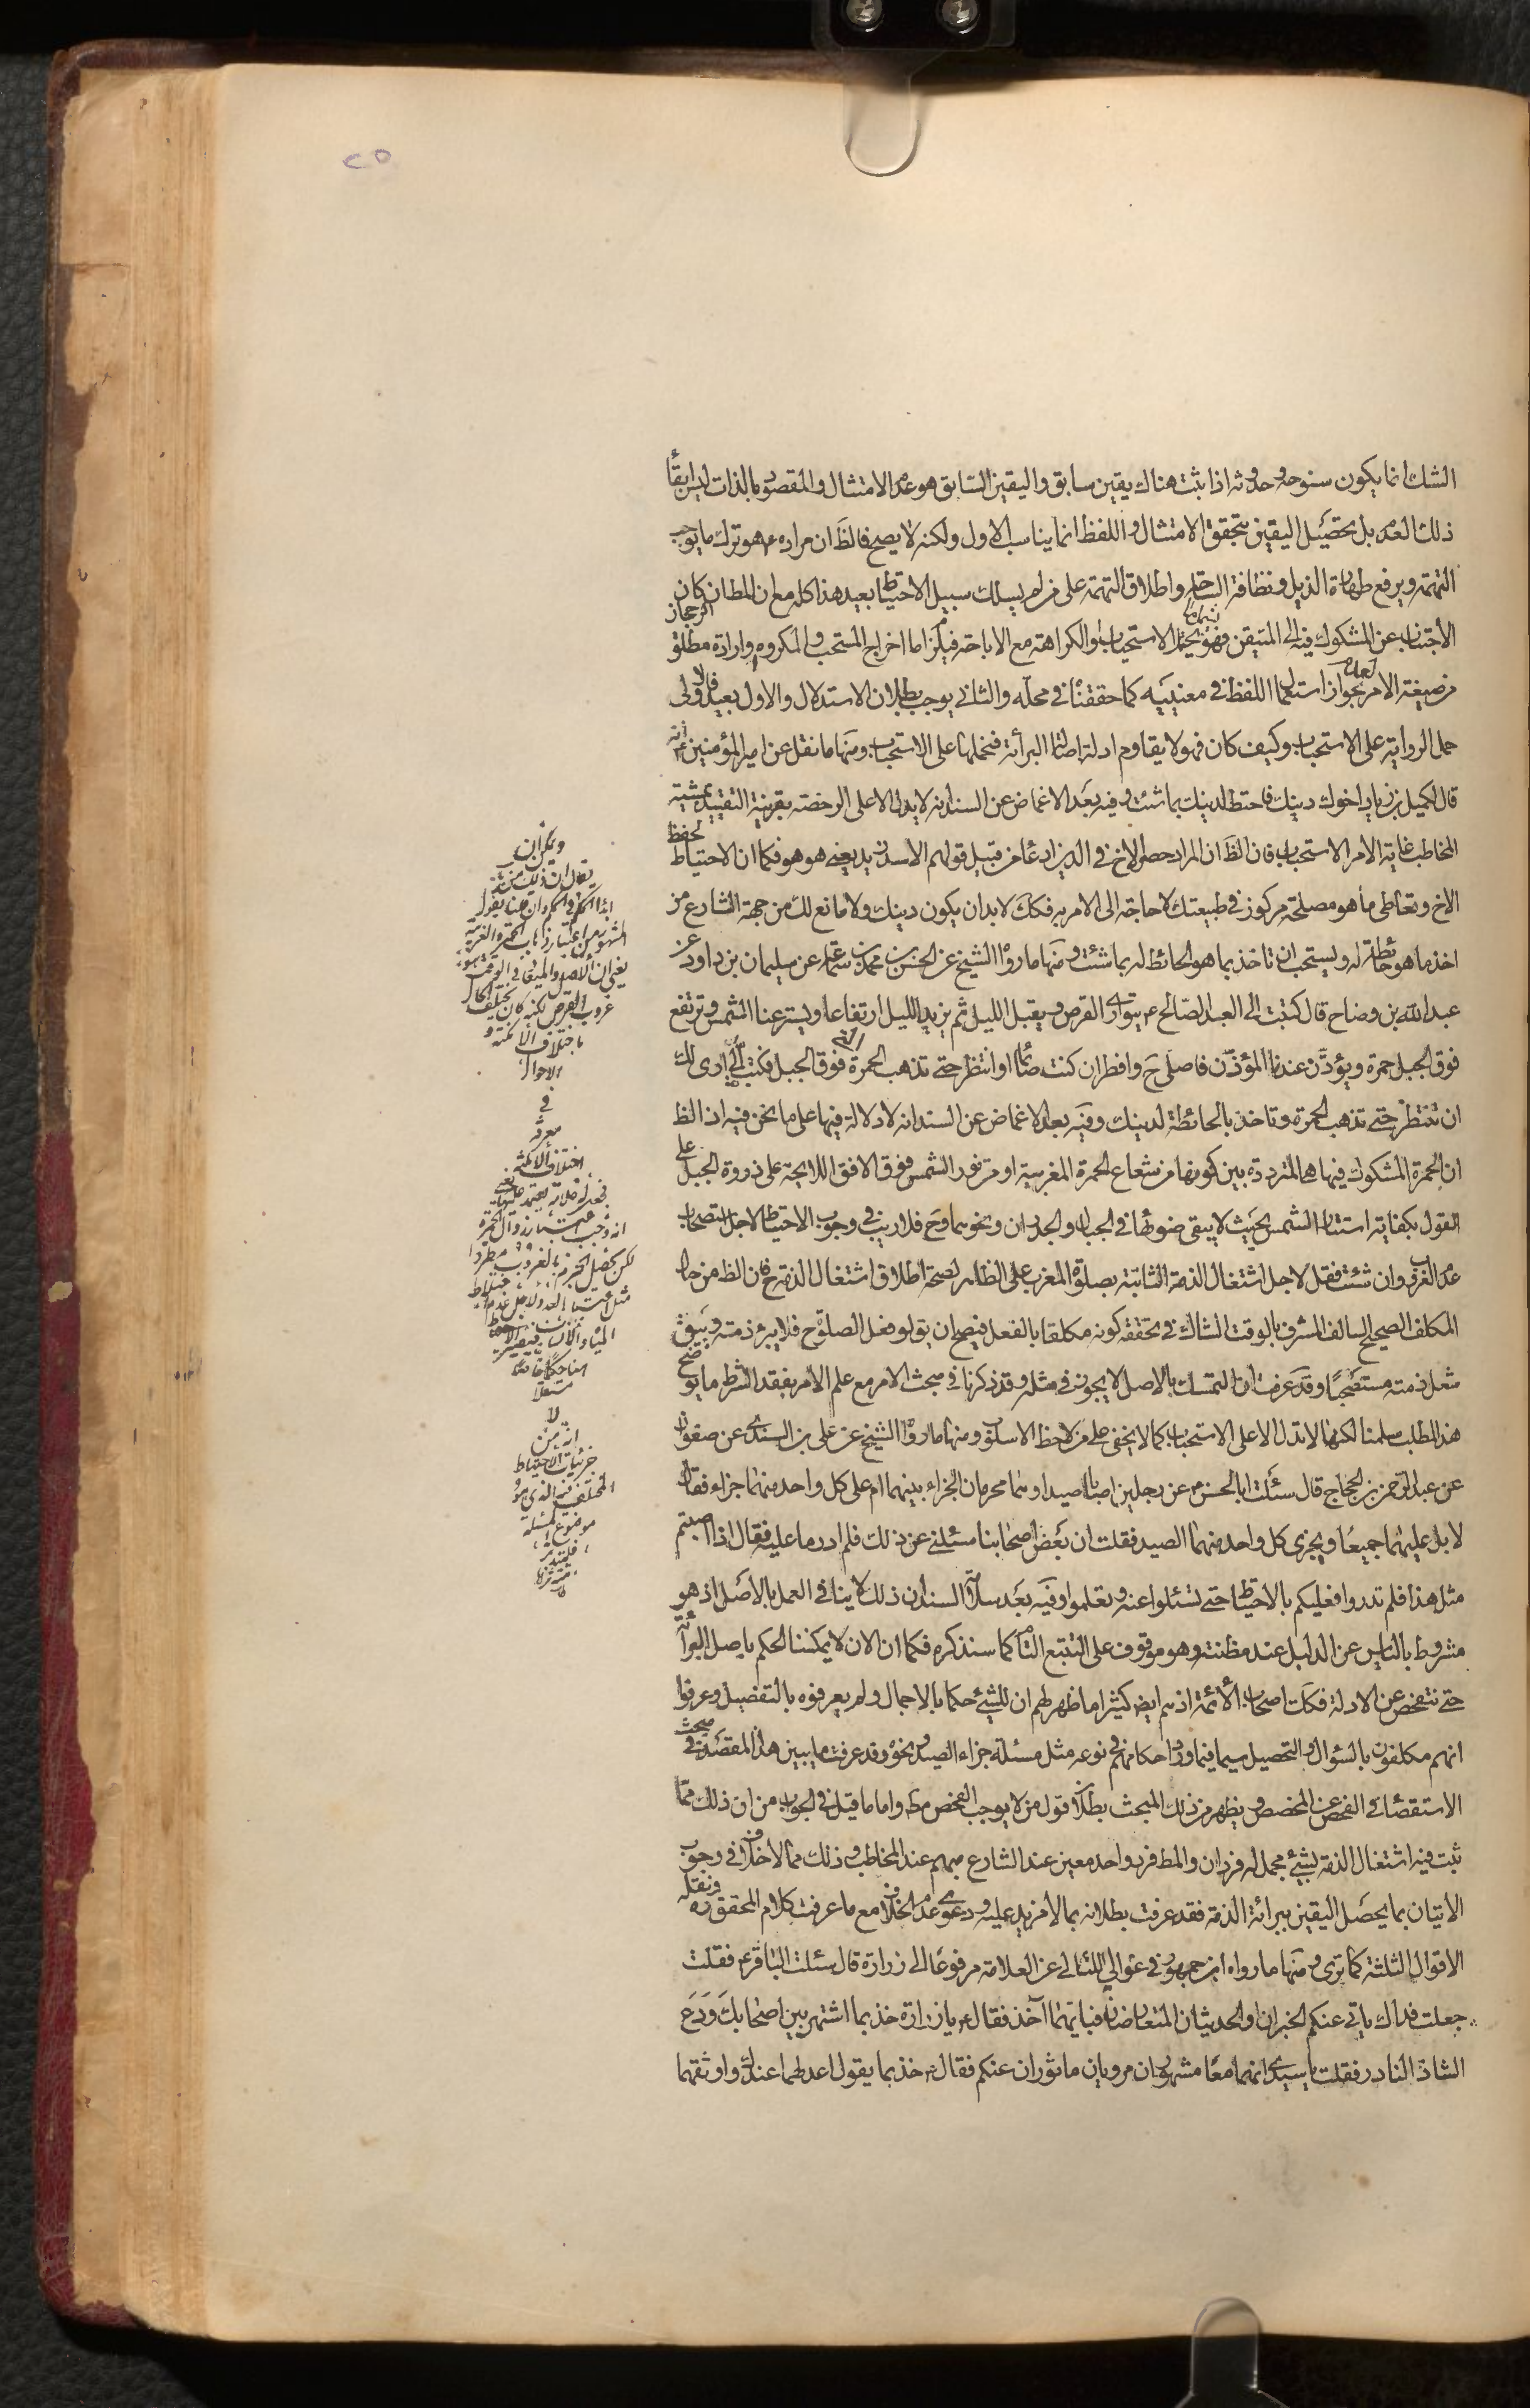 ٢٥
الشك انما يكون سنوحه وحدوثه اذا ثبت هناك يقين سابق واليقين السابق هو عدم الامتثال والمقصود بالذات ليس ابقاء
ذلك العدم بل تحصيل اليقين بتحقق الامتثال واللفظ انما يناسب الاول ولكنه لا يصح فالظ ان مراده ع هو ترك ما يوجب
التهمة ويرفع طهارة الذيل ونظافة الساحة واطلاق التهمة على من لم يسلك سبيل الاحتياط بعيد هذا كله مع ان المط ان كان
الاجتناب عن المشكوك فيه الى المتيقن فهو يحتمل الاستحباب والكراهة مع الاباحة فيلزم اما اخراج المستحب والمكروه او ارادة مطلق الرجحان
من صيغة الامر بجواز استعمال اللفظ في معنييه كما حققناه في محله والثاني يوجب بطلان الاستدلال والاول بعيد فالاولى
حمل الرواية على الاستحباب وكيف كان فهو لا يقاوم ادلة اصالة البرائة فنحملها على الاستحباب ومنها ما نقل عن امير المؤمنين ع انه
قال لكميل بن زياد اخوك دينك فاحتط لدينك بما شئت وفيه بعد الاغماض عن السند انه لا يدل الا على الرخصة بقرينة التقييد بمشية
المخاطب غاية الامر الاستحباب فان الظ ان المراد حصر الاخ في الدين ادعاء من قبيل قولهم الاسد زيد يعني هو هو فكما ان الاحتياط لحفظ
الاخ وتعاطي ما هو مصلحة مركوز في طبيعتك لا حاجة الى الامر به فكك لا بد ان يكون دينك ولا مانع لك من جهة الشارع من
اخذ ما هو حائطة له ويستحب ان تاخذ بما هو الحائط له بما شئت ومنها ما رواه الشيخ عن الحسن بن محمد بن سماعة عن سليمان بن داود عن
عبد الله بن وضاح قال كتبت الى العبد الصالح ع يتوارى القرص ويقبل الليل ثم يزيد الليل ارتفاعا ويستر عنا الشمس وترتفع
فوق الجبل حمرة ويؤذن عندنا المؤذن فاصلي ح وافطر ان كنت صائما او انتظر حتى تذهب الحمرة التي فوق الجبل فكتب الي ارى لك
ان تنتظر حتى تذهب الحمرة وتاخذ بالحائطة لدينك وفيه بعد الاغماض عن السند انه لا دلالة فيها على ما نحن فيه اذ الظ
ان الحمرة المشكوك فيها هي المترددة بين كونها من شعاع الحمرة المغربية او من نور الشمس فوق الافق اللايحة على ذروة الجبل على
القول بكفاية استتار الشمس بحيث لا يبقى ضوئها في الجبال والجدران ونحوهما وح فلا ريب في وجوب الاحتياط لاجل استصحاب
عدم الغروب وان شئت فقل لاجل اشتغال الذمة الثابتة بصلوة المغرب على الظاهر لصحة اطلاق اشتغال الذمة ح فان الظ من حال
المكلف الصحيح السالف المشرف بالوقت الشاك في تحققه كونه مكلفا بالفعل فيصح ان يق لو فعل الصلوة ح فلا يبرء ذمته ويبقى
شغل ذمته مستصحبا وقد عرفت ان التمسك بالاصل لا يجوز في مثله وقد ذكرنا في مبحث الامر مع علم الامر بفقد الشرط ما يوضح
هذا المطلب سلمنا لكنها لا تدل الا على الاستحباب كما لا يخفى على من لاحظ الاسلوب ومنها ما رواه الشيخ عن علي بن السندي عن صفوان
عن عبد الرحمن بن الحجاج قال سئلت ابا الحسن ع عن رجلين اصابا صيدا وهما محرمان الجزاء بينهما ام على كل واحد منهما جزاء فقال
لا بل عليهما جميعا ويجزي كل واحد منهما الصيد فقلت ان بعض اصحابنا سئلني عن ذلك فلم ادر ما عليه فقال اذا اصبتم
مثل هذا فلم تدروا فعليكم بالاحتياط حتى تسئلوا عنه وتعلموا وفيه بعد سلامة السند ان ذلك لا ينافي العمل بالاصل اذ هو
مشروط بالياس عن الدليل عند مظنته وهو موقوف على التتبع التام كما سنذكره فكما ان الان لا يمكننا الحكم باصل البرائة
حتى نتفحص عن الادلة فكك اصحاب الائمة اذ هم ايض كثيرا ما ظهر لهم ان للشيء حكما بالاجمال ولم يعرفوه بالتفصيل وعرفوا
انهم مكلفون بالسؤال والتحصيل سيما فيما ورد احكامهم في نوعه مثل مسئلة جزاء الصيد ونحوه وقد عرفت ما يبين هذا المقصد في مبحث
الاستقصاء في الفحص عن المخصص ويظهر من ذلك المبحث بطلان قول من لا يوجب الفحص مط واما ما قيل في الجواب من ان ذلك مما
ثبت فيه اشتغال الذمة بشيء مجمل له فردان والمط فرد واحد معين عند الشارع مبهم عند المخاطب وذلك مما لا خلاف في وجوب
الاتيان بما يحصل اليقين ببرائة الذمة فقد عرفت بطلانه بما لا مزيد عليه ودعوى عدم الخلاف مع ما عرفت كلام المحقق ره ونقله
الاقوال الثلثة كما ترى ومنها ما رواه ابن جمهور في غوالي اللئالي عن العلامة مرفوعا الى زرارة قال سئلت الباقر ع فقلت
جعلت فداك ياتي عنكم الخبران والحديثان المتعارضان فبايهما آخذ فقال ع يا زرارة خذ بما اشتهر بين اصحابك ودع
الشاذ النادر فقلت يا سيدي انهما معا مشهوران مرويان ماثوران عنكم فقال ع خذ بما يقول اعدلهما عندك واوثقهما
ويمكن ان
يقال ان ذلك من
المشهور من اعتبار ذهاب الحمرة المغربية
غروب القرص لكنه كان يختلف الحال
باختلاف الامكنة و
الاحوال
في
معرفة
اختلاف الامكنة
لا
انه من
جزئيات الاحتياط
المختلف فيه الذي هو
موضوع المسئلة
فليتدبر